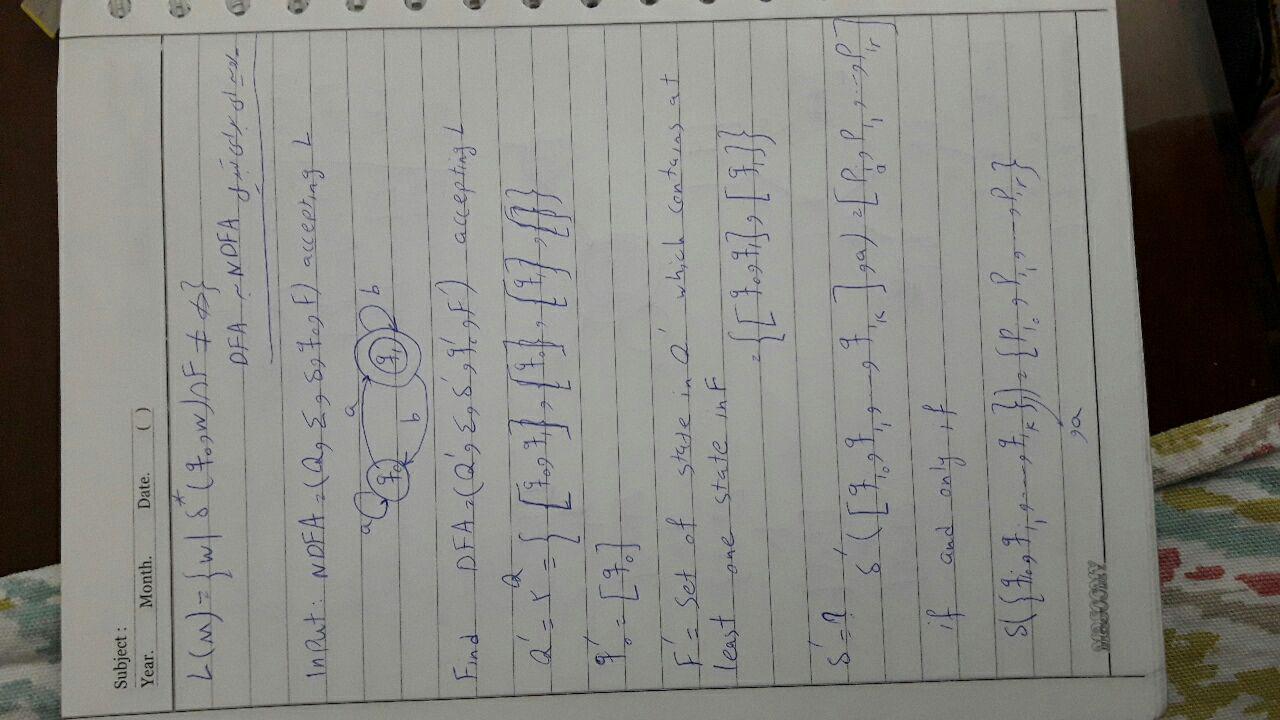 Subject :
Year. Month. Date. ( )
L(M) = { w | δ*(q₀, w) ∩ F ≠ ∅ }
DFA NDFA
Input: NDFA = (Q, Σ, δ, q₀, F) accepting L
a a q₀ q₁ b b
Find DFA = (Q', Σ, δ', q₀', F') accepting L
Q' = r^Q = { [q₀, q₁], [q₀], [q₁], [] }
q₀' = [q₀]
F' = Set of state in Q' which contains at
least one state in F
= { [q₀, q₁], [q₁] }
δ' = ? δ' ([q_i₀, q_i₁, ..., q_iK], a) = [P_i₀, P_i₁, ..., P_ir]
if and only if
δ({q_i₀, q_i₁, ..., q_iK}) = {P_i₀, P_i₁, ..., P_ir}
, a